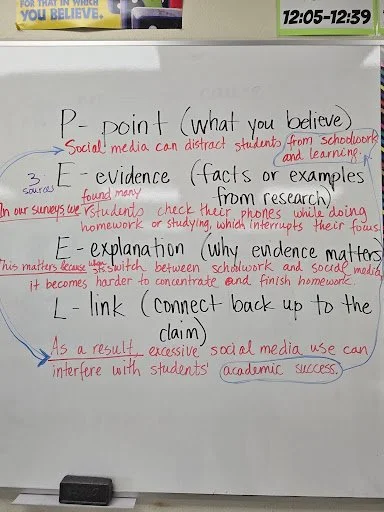 FOR THAT IN WHICH
YOU BELIEVE.
12:05-12:39
P - point (what you believe)
Social media can distract students from schoolwork
and learning.
3
sources
E - evidence (facts or examples
from research)
found many
In our surveys we students check their phones while doing
homework or studying, which interrupts their focus.
E - explanation (why evidence matters)
This matters because when sts switch between schoolwork and social media,
it becomes harder to concentrate and finish homework.
L - link (connect back up to the
claim)
As a result, excessive social media use can
interfere with students' academic success.